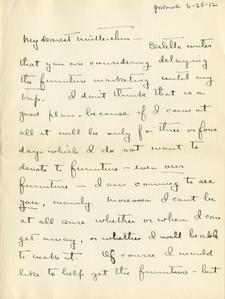 postmark 6-25-12
My dearest Mütterchen —
Estella writes
that you are considering delaying
the furniture marketing until my
trip. I don't think that is a
good plan, because if I come at
all it will be only for three or four
days which I do not want to
devote to furniture — even our
furniture — I am coming to see
you, mainly. Moreover I can't be
at all sure whether or when I can
get away, or whether I will be able
to make it. Of course I would
like to help get the furniture — but